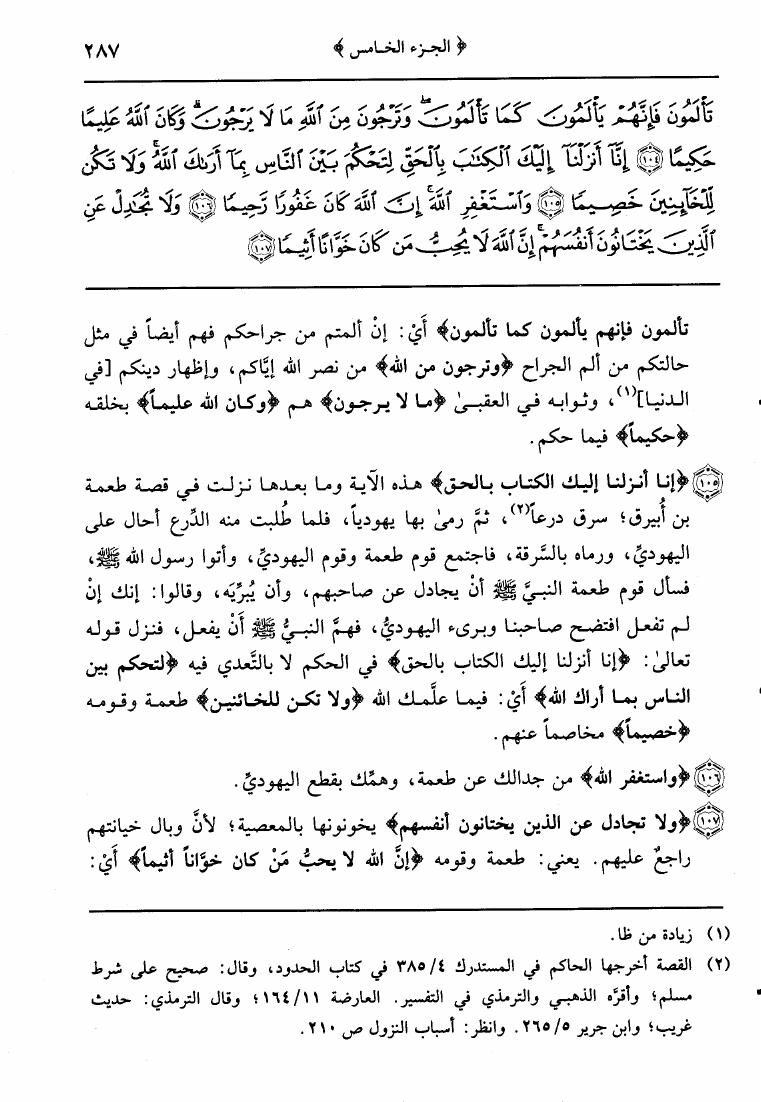 ﴿ الجزء الخامس ﴾ ٢٨٧
تَأْلَمُونَ فَإِنَّهُمْ يَأْلَمُونَ كَمَا تَأْلَمُونَ ۖ وَتَرْجُونَ مِنَ ٱللَّهِ مَا لَا يَرْجُونَ ۗ وَكَانَ ٱللَّهُ عَلِيمًا
حَكِيمًا ١٠٤ إِنَّآ أَنزَلْنَآ إِلَيْكَ ٱلْكِتَـٰبَ بِٱلْحَقِّ لِتَحْكُمَ بَيْنَ ٱلنَّاسِ بِمَآ أَرَىٰكَ ٱللَّهُ ۚ وَلَا تَكُن
لِّلْخَآئِنِينَ خَصِيمًا ١٠٥ وَٱسْتَغْفِرِ ٱللَّهَ ۖ إِنَّ ٱللَّهَ كَانَ غَفُورًا رَّحِيمًا ١٠٦ وَلَا تُجَـٰدِلْ عَنِ
ٱلَّذِينَ يَخْتَانُونَ أَنفُسَهُمْ ۚ إِنَّ ٱللَّهَ لَا يُحِبُّ مَن كَانَ خَوَّانًا أَثِيمًا ١٠٧
تألمون فإنهم يألمون كما تألمون﴾ أَيْ: إنْ ألمتم من جراحكم فهم أيضاً في مثل
حالتكم من ألم الجراح ﴿وترجون من الله﴾ من نصر الله إيَّاكم، وإظهار دينكم [في
الدنيا](١)، وثوابه في العقبىٰ ﴿ما لا يرجون﴾ هم ﴿وكان الله عليماً﴾ بخلقه
﴿حكيماً﴾ فيما حكم.
١٠٥ ﴿إنا أنزلنا إليك الكتاب بالحق﴾ هذه الآية وما بعدها نزلت في قصة طعمة
بن أُبيرق؛ سرق درعاً(٢)، ثمَّ رمىٰ بها يهودياً، فلما طُلبت منه الدِّرع أحال على
اليهوديِّ، ورماه بالسَّرقة، فاجتمع قوم طعمة وقوم اليهوديِّ، وأتوا رسول الله ﷺ،
فسأل قوم طعمة النبيَّ ﷺ أنْ يجادل عن صاحبهم، وأن يُبرِّيَه، وقالوا: إنك إنْ
لم تفعل افتضح صاحبنا وبرىء اليهوديُّ، فهمَّ النبيُّ ﷺ أَنْ يفعل، فنزل قوله
تعالىٰ: ﴿إنا أنزلنا إليك الكتاب بالحق﴾ في الحكم لا بالتَّعدي فيه ﴿لتحكم بين
الناس بما أراك الله﴾ أَيْ: فيما علَّمك الله ﴿ولا تكن للخائنين﴾ طعمة وقومه
﴿خصيماً﴾ مخاصماً عنهم.
١٠٦ ﴿واستغفر الله﴾ من جدالك عن طعمة، وهمِّك بقطع اليهوديِّ.
١٠٧ ﴿ولا تجادل عن الذين يختانون أنفسهم﴾ يخونونها بالمعصية؛ لأنَّ وبال خيانتهم
راجعٌ عليهم. يعني: طعمة وقومه ﴿إنَّ الله لا يحبُّ مَنْ كان خوَّاناً أثيماً﴾ أَيْ:
(١) زيادة من ظا.
(٢) القصة أخرجها الحاكم في المستدرك ٤/ ٣٨٥ في كتاب الحدود، وقال: صحيح على شرط
مسلم؛ وأقرَّه الذهبي والترمذي في التفسير. العارضة ١١/ ١٦٤؛ وقال الترمذي: حديث
غريب؛ وابن جرير ٥/ ٢٦٥. وانظر: أسباب النزول ص ٢١٠.